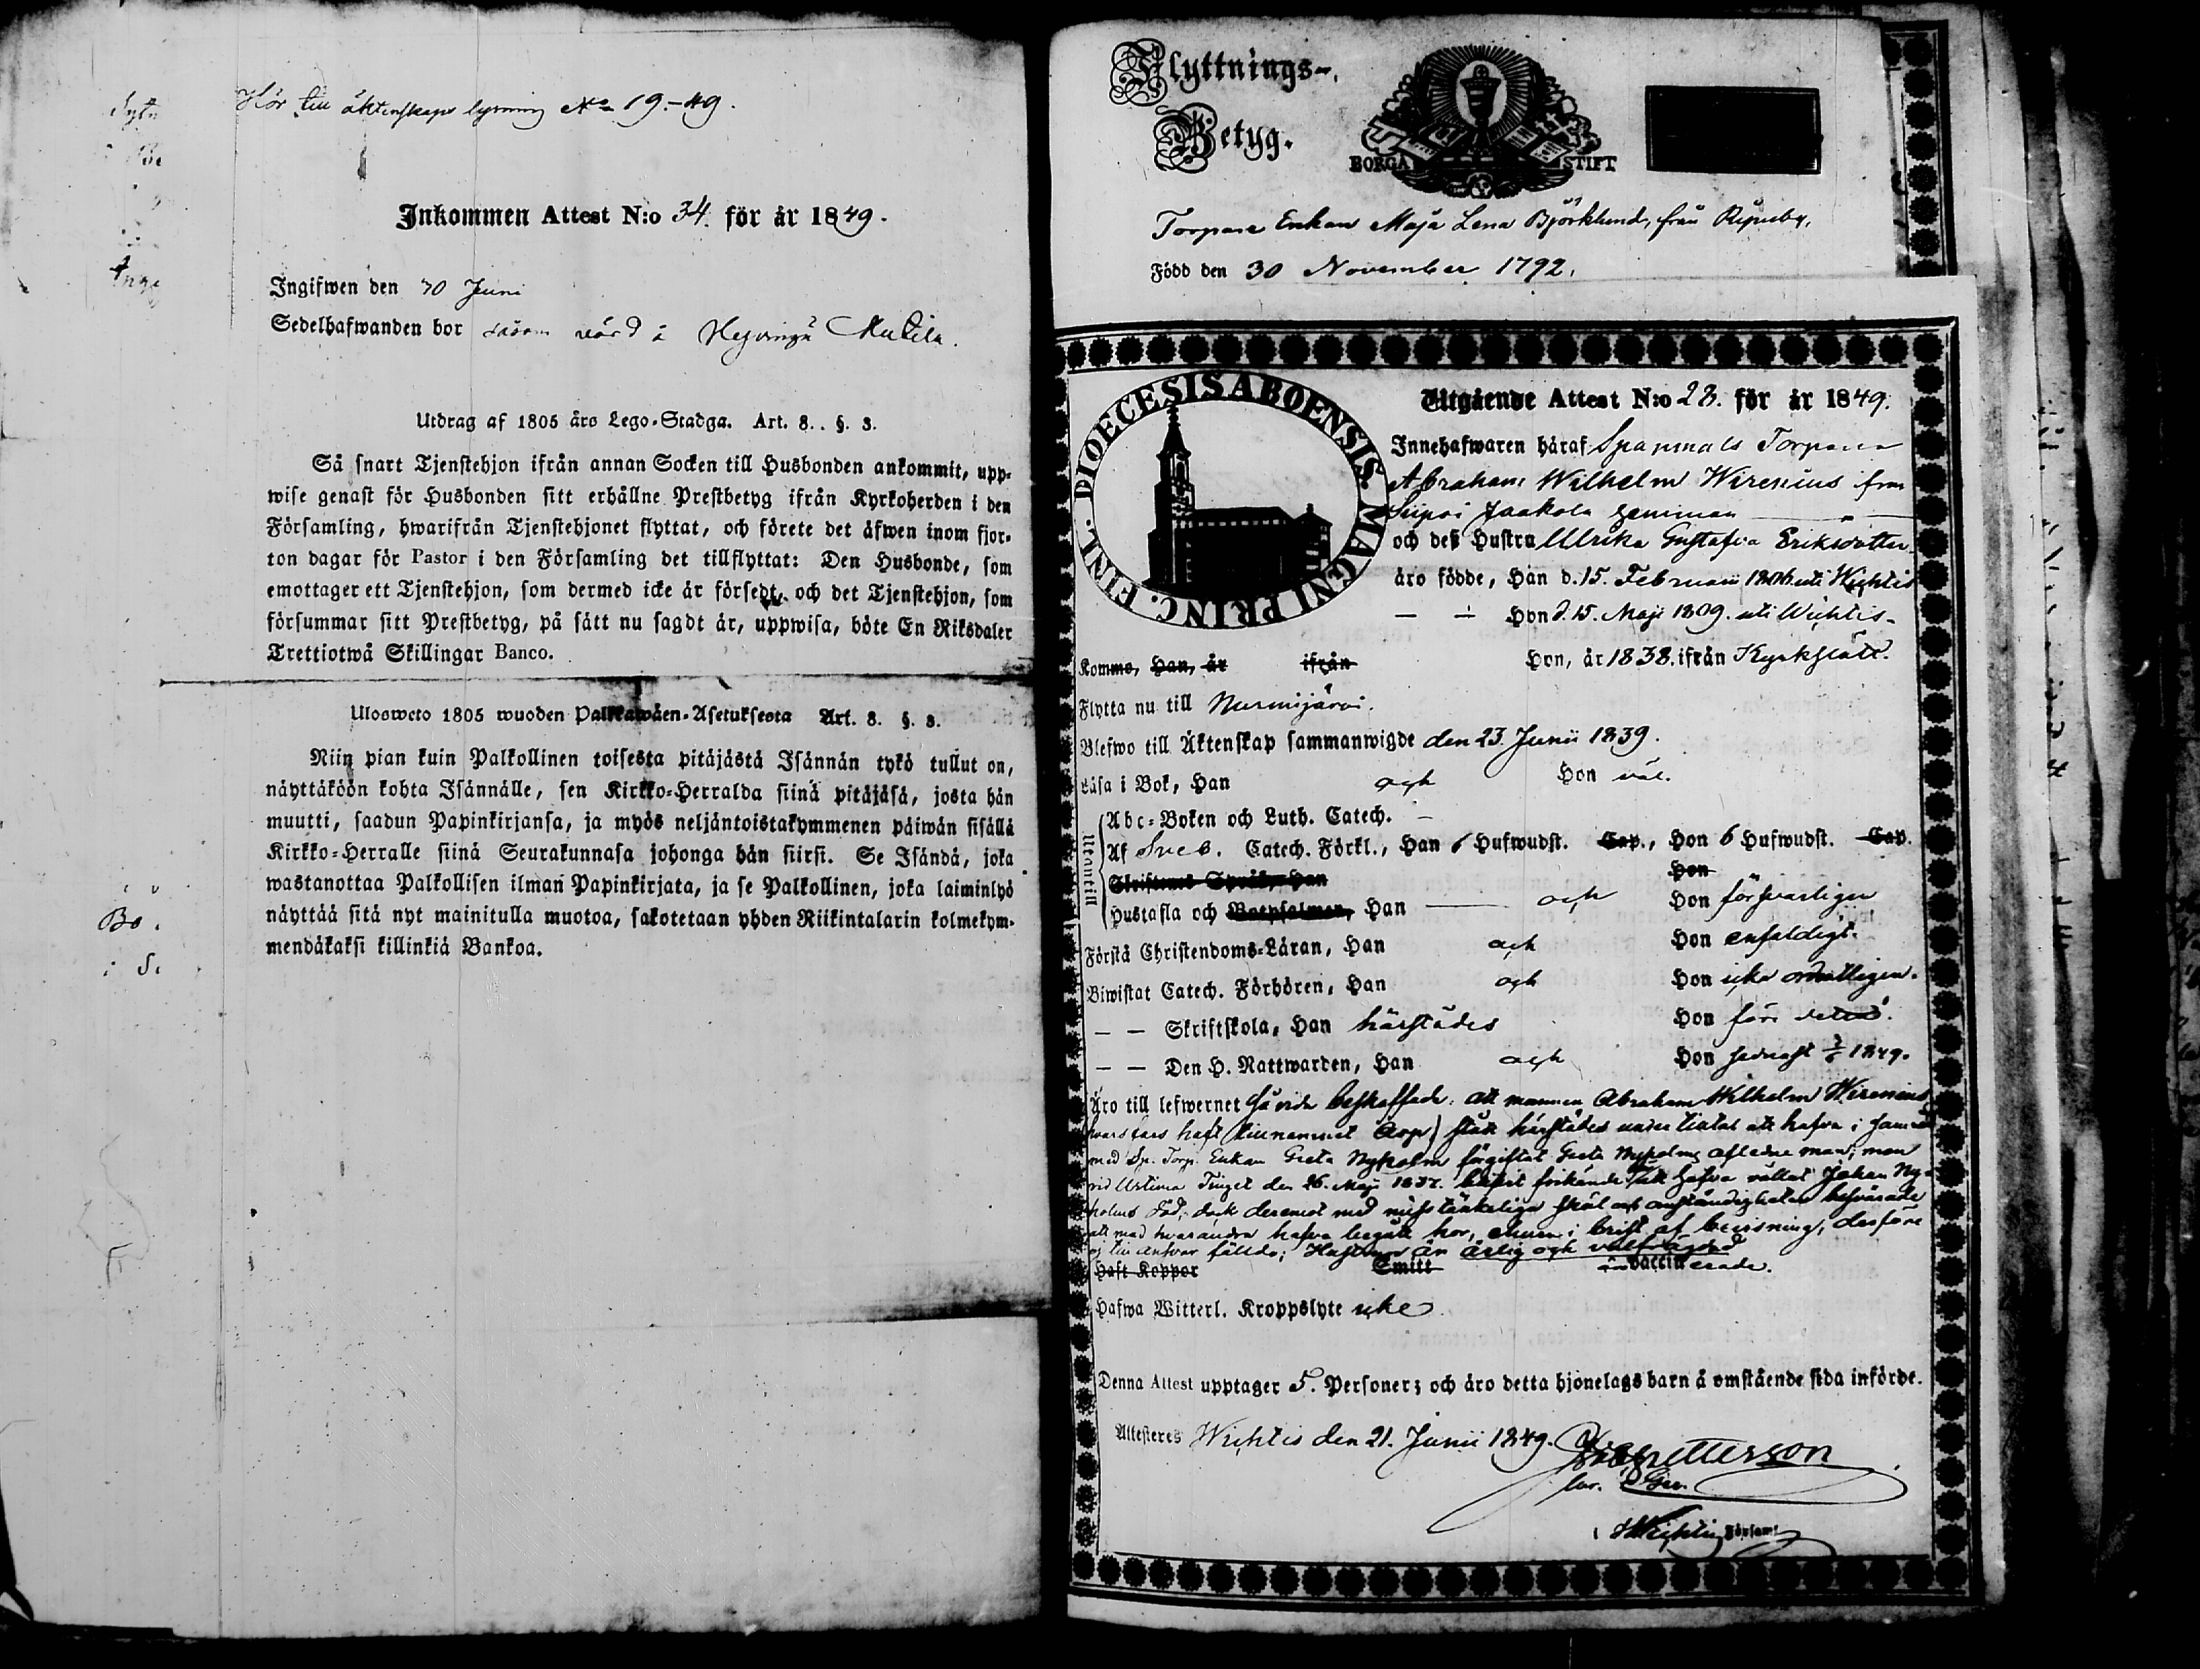 Hör till äktenskaps lysning No 19.-49.
Inkommen Attest N:o 34. för år 1849.
Ingifwen den 30 Juni
Sedelhafwanden bor såsom värd å
Utdrag af 1805 års Lego-Stadga. Art. 8.. §. 3.
Så snart Tjenstehjon ifrån annan Socken till Husbonden ankommit, upp-
wise genast för Husbonden sitt erhållne Prestbetyg ifrån Kyrkoherden i den
Församling, hwarifrån Tjenstehjonet flyttat, och förete det äfwen inom fjor-
ton dagar för Pastor i den Församling det tillflyttat: Den Husbonde, som
emottager ett Tjenstehjon, som dermed icke är försedt, och det Tjenstehjon, som
försummar sitt Prestbetyg, på sätt nu sagdt är, uppwisa, böte En Riksdaler
Trettiotwå Skillingar Banco.
Ulosweto 1805 wuoden Palkkawäen-Asetuksesta Art. 8. §. 3.
Niin pian kuin Palkollinen toisesta pitäjästä Isännän tykö tullut on,
näyttäköön kohta Isännälle, sen Kirkko-Herralda siinä pitäjäsä, josta hän
muutti, saadun Papinkirjansa, ja myös neljäntoistakymmenen päiwän sisällä
Kirkko-Herralle siinä Seurakunnasa johonga hän siirsi. Se Isändä, joka
wastanottaa Palkollisen ilman Papinkirjata, ja se Palkollinen, joka laiminlyö
näyttää sitä nyt mainitulla muotoa, sakotetaan yhden Riikintalarin kolmekym-
mendäkaksi killinkiä Bankoa.
Flyttnings-
Betyg.
BORGÅ STIFT
Torpare Enkan Maja Lena Björklund, från
Född den 30 November 1792.
DIOECESIS ABOENSIS. MAGNI PRINC. FINL.
Utgående Attest N:o 28. för år 1849.
Innehafwaren häraf Spanmåls Torparen
Abraham Wilhelm Wirenius från
Jaakola hemman
och deß Hustru Ulrika Gustafva Eriksdotter
äro födde, Han d. 15. Februarii 1806 uti Wichtis
— — Hon d. 15. Maji 1809. uti Wichtis
Komme, Han, år ifrån Hon, år 1838. ifrån Kyrkslätt.
Flytta nu till Nurmijärvi.
Blefwo till Äktenskap sammanwigde den 23. Junii 1839.
Läsa i Bok, Han och Hon väl.
Utantill
Abc-Boken och Luth. Catech. –
Af Sveb. Catech. Förkl., Han 6 Hufwudst. Cap., Hon 6 Hufwudst. Cap.
Skriftens Språk, Han Hon
Hustafla och Botpsalmen, Han — och Hon försvarligen
Förstå Christendoms-Läran, Han och Hon enfaldigt.
Biwistat Catech. Förhören, Han och Hon icke ordentligen.
— — Skriftskola, Han härstädes Hon före detta.
— — Den H. Nattwarden, Han och Hon sednast 3/6 1849.
Äro till lefwernet så vida beskaffade: att mannen Abraham Wilhelm Wirenius
hvars fars haft tillnamnet Arp) stått härstädes under tilltal att hafva i samråd
med Sp. Torp. Enkan Greta Nyholm förgiftat Greta Nyholms aflidne man; men
vid Urtima Tinget den 26. Maji 1837. blifvit frikände att hafva vållat Johan Ny-
holms död, dock deremot med misstänkeliga skäl och omständigheter besvärade
att med hvarandra hafva begått hor, ehuru i brist af bevisning, derföre
ej till ansvar fällde; Hustrun är ärlig och välfrägdad
Haft Koppor Smitt Vaccinerade.
Hafwa Witterl. Kroppslyte icke
Denna Attest upptager 5. Personer; och äro detta hjonelags barn å omstående sida införde.
Attesteras Wichtis den 21. Junii 1849.
i Wichtis Församl.